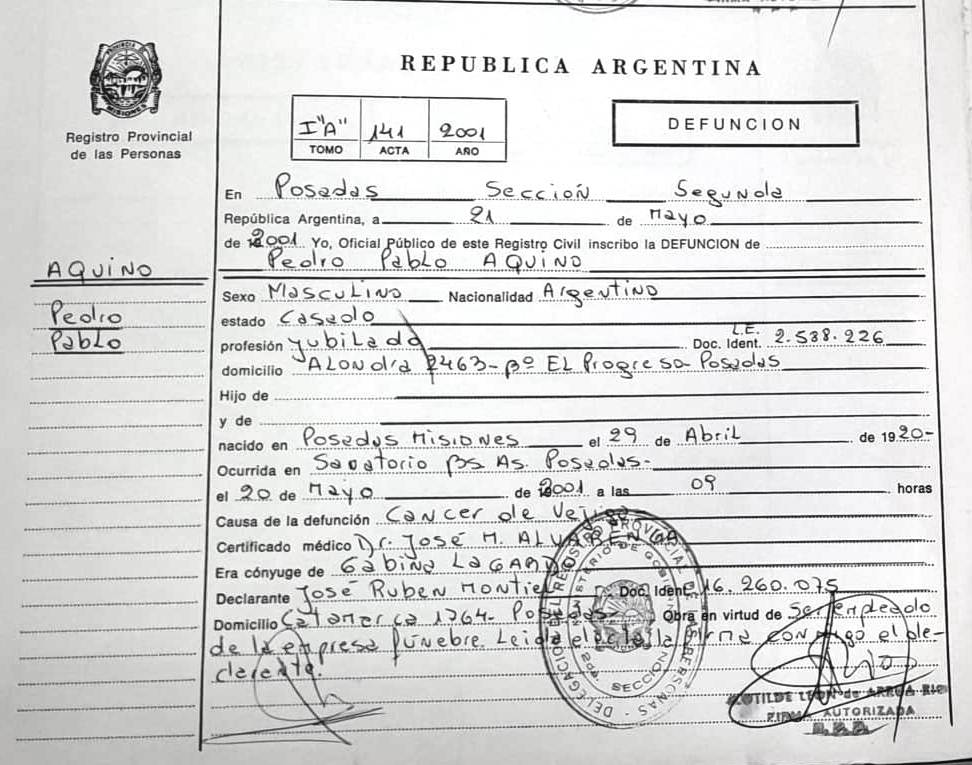 REPUBLICA ARGENTINA
PROVINCIA DE MISIONES
Registro Provincial
de las Personas
I "A" 141 2001
TOMO ACTA AÑO
DEFUNCION
En Posadas Sección Segunda
República Argentina, a 21 de Mayo
de 2001 Yo, Oficial Público de este Registro Civil inscribo la DEFUNCION de
Pedro Pablo AQUINO
AQUINO
Pedro
Pablo
Sexo Masculino Nacionalidad Argentino
estado Casado
profesión Jubilado L.E. Doc. Ident. 2.538.226
domicilio ALONdra 2463- Bº EL Progreso- Posadas
Hijo de
y de
nacido en Posadas Misiones el 29 de Abril de 1920-
Ocurrida en Sanatorio Bs As. Posadas-
el 20 de Mayo de 2001 a las 09 horas
Causa de la defunción Cancer de Vejiga
Certificado médico Dr. José M. ALVARENGA
Era cónyuge de Gabina
Declarante José Ruben Montiel Doc. Ident. 16.260.075
Domicilio Catamarca 1764- Posadas Obra en virtud de Ser empleado
de la empresa fúnebre. Leida el acta, la firma conmigo el de-
clarante.
DELEGACION DEL REGISTRO PROVINCIAL DE LAS PERSONAS
MINISTERIO DE GOBIERNO
SECCION
CLOTILDE LEON de ARRUA
FIRMA AUTORIZADA